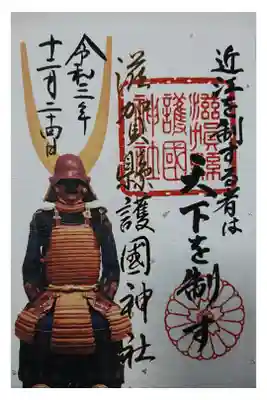 近江を制する者は
天下を制す
滋賀縣護國神社
滋賀縣
護國
神社
令和三年
十二月二十四日